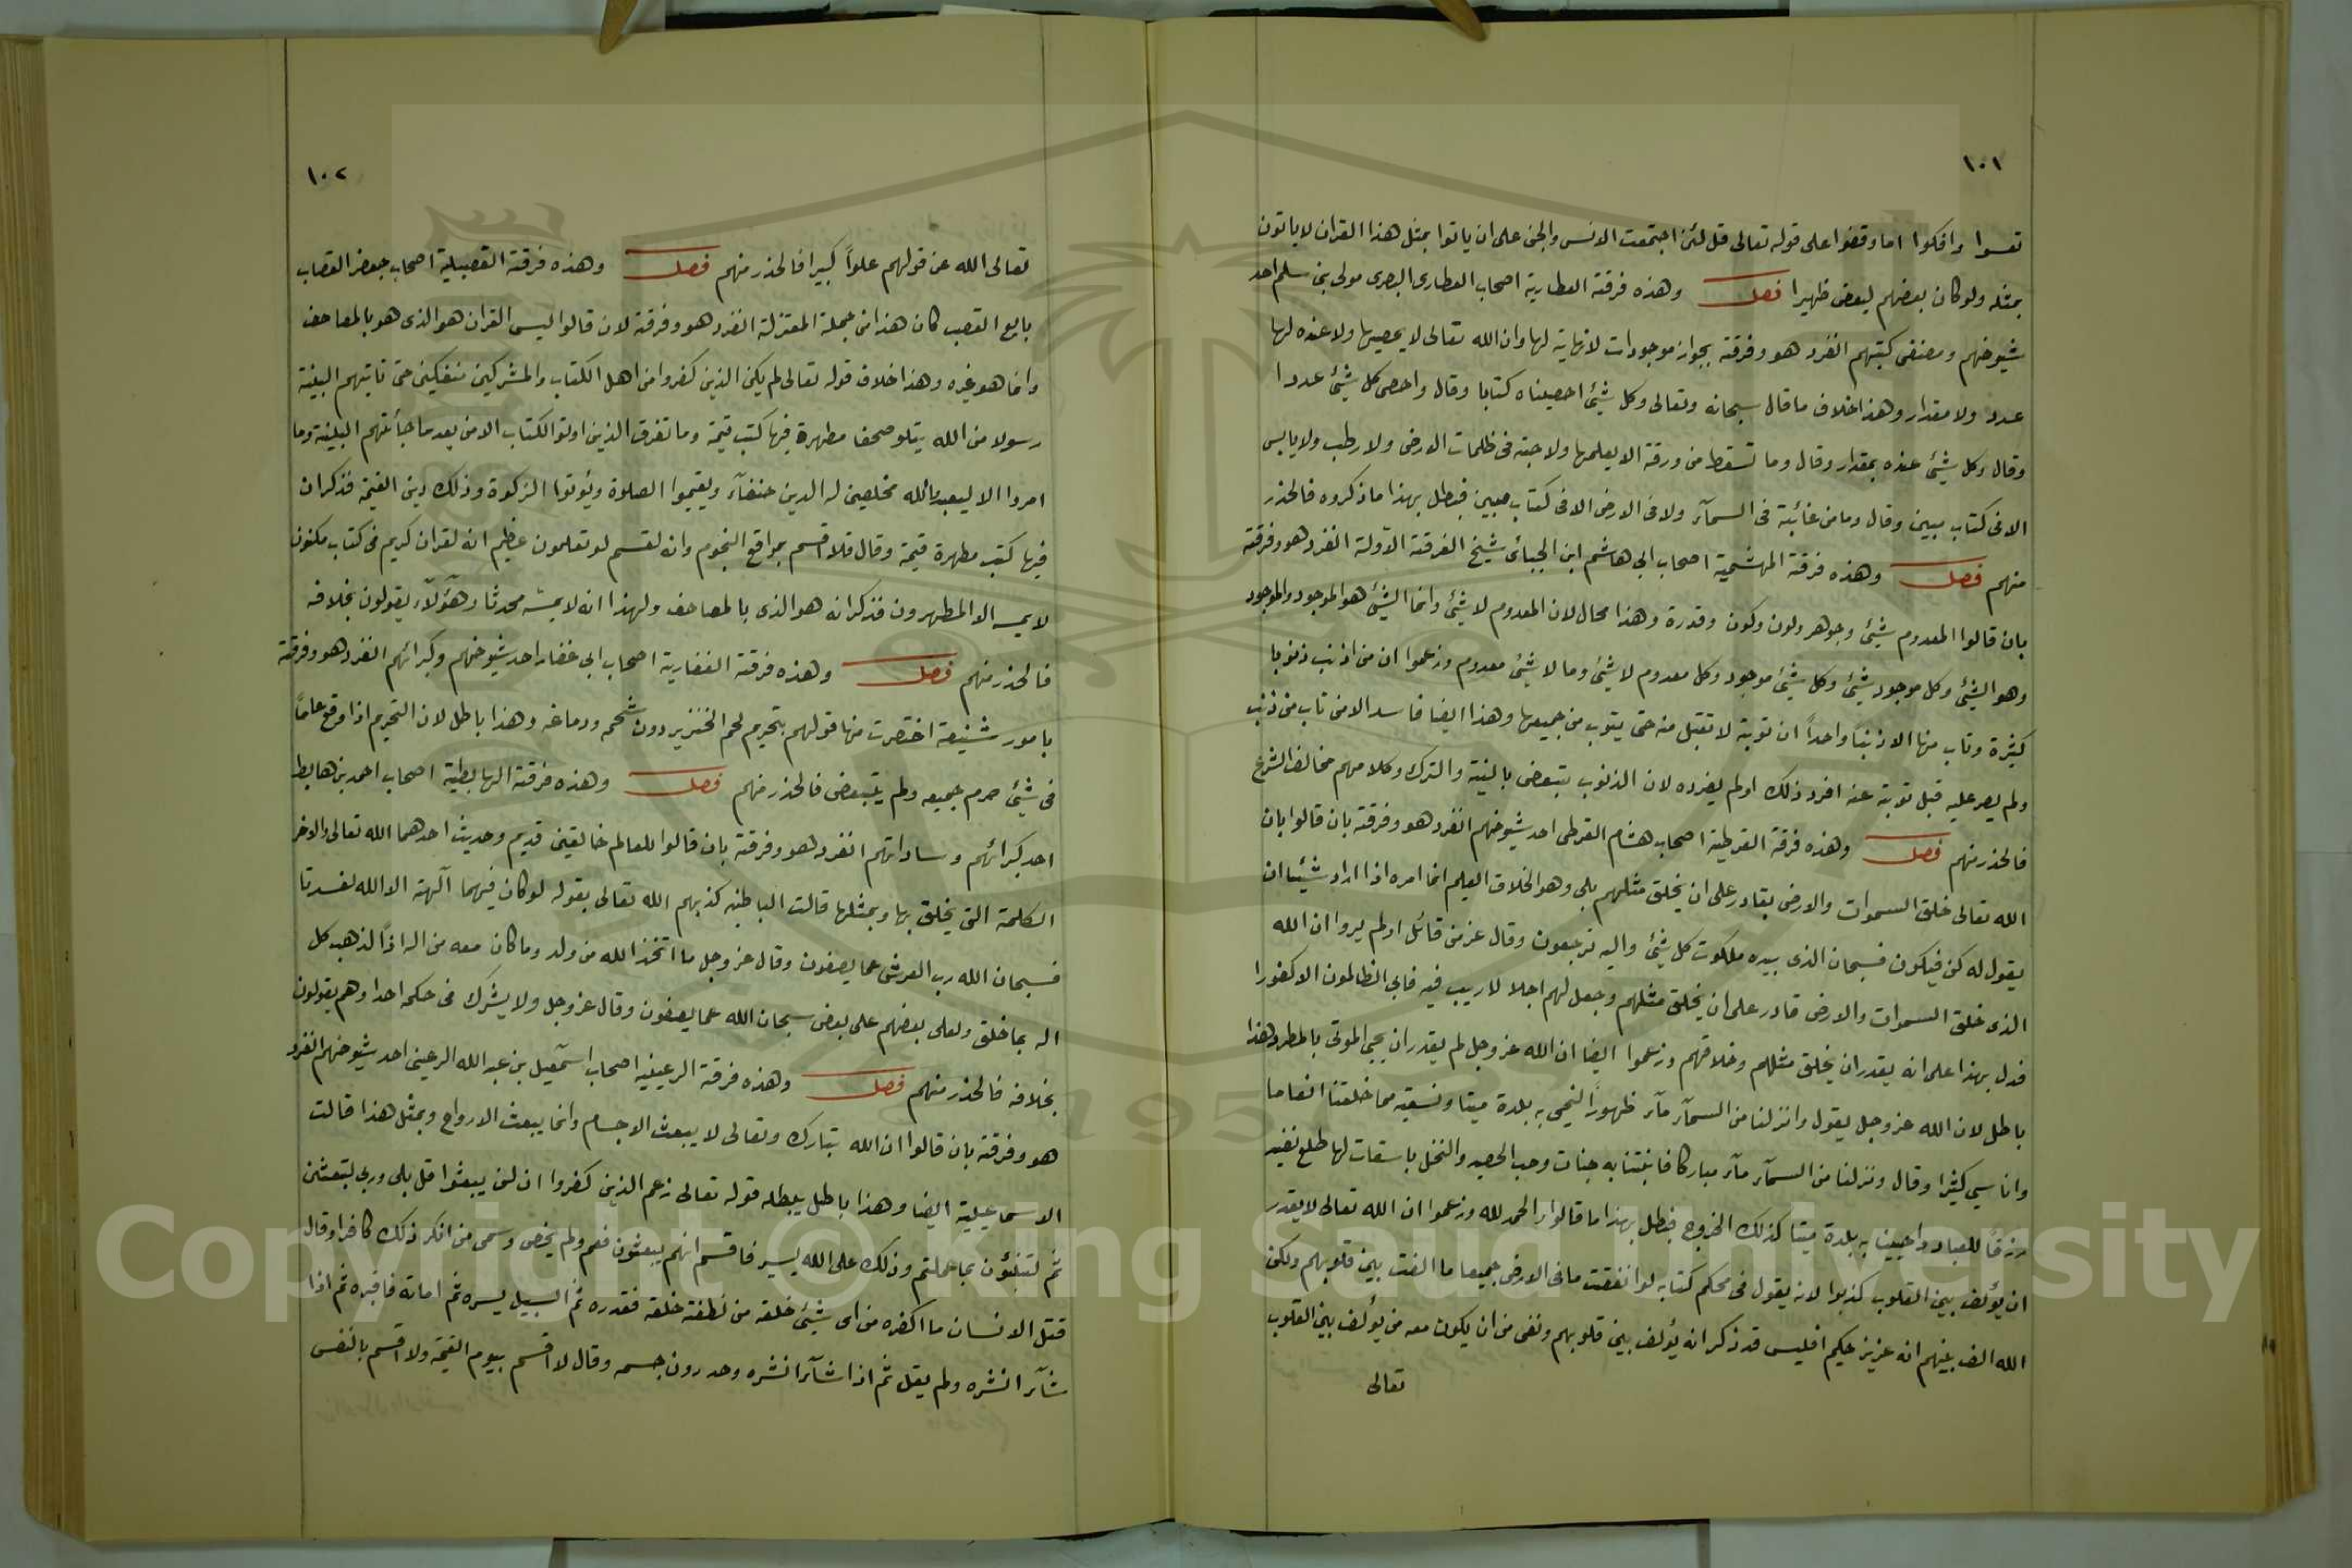 ١٠١
تعسوا وافكوا اما وقفوا على قوله تعالى قل لئن اجتمعت الانس والجن على ان ياتوا بمثل هذا القران لا ياتون
بمثله ولو كان بعضهم لبعض ظهيرا فصل وهذه فرقة العطارية اصحاب العطارى البصرى مولى بنى سليم احد
شيوخهم ومصنفى كتبهم انفرد هو وفرقته بجواز موجودات لا نهاية لها وان الله تعالى لا يحصيها ولا عنده لها
عدد ولا مقدار وهذا خلاف ما قال سبحانه وتعالى وكل شيئ احصيناه كتابا وقال واحصى كل شيئ عددا
وقال وكل شيئ عنده بمقدار وقال وما تسقط من ورقة الا يعلمها ولا حبة فى ظلمات الارض ولا رطب ولا يابس
الا فى كتاب مبين وقال وما من غائبة فى السمآء ولا فى الارض الا فى كتاب مبين فبطل بهذا ما ذكروه فالحذر
منهم فصل وهذه فرقة البهشمية اصحاب ابى هاشم ابن الجبائى شيخ الفرقة الاولة انفرد هو وفرقته
بان قالوا المعدوم شيئ وجوهر ولون وكون وقدرة وهذا محال لان المعدوم لا شيئ وانما الشيئ هو الموجود والموجود
وهو الشيئ وكل موجود شيئ وكل شيئ موجود وكل معدوم لا شيئ وما لا شيئ معدوم وزعموا ان من اذنب ذنوبا
كثيرة وتاب منها الا ذنبا واحداً ان توبة لا تقبل منه حتى يتوب من جميعها وهذا ايضا فاسد الا من تاب من ذنب
ولم يصر عليه قبل توبته عنه افرد ذلك اولم يفرده لان الذنوب تتبعض بالنية والترك وكلامهم مخالف الشرع
فالحذر منهم فصل وهذه فرقة القرطية اصحاب هشام القرطى احد شيوخهم انفرد هو وفرقته بان قالوا بان
الله تعالى خلق السموات والارض بقادر على ان يخلق مثلهم بلى وهو الخلاق العليم انما امره اذا اراد شيئا ان
يقول له كن فيكون فسبحان الذى بيده ملكوت كل شيئ واليه ترجعون وقال عز من قائل اولم يروا ان الله
الذى خلق السموات والارض قادر على ان يخلق مثلهم وجعل لهم اجلا لا ريب فيه فابى الظالمون الا كفورا
فدل بهذا على انه يقدر ان يخلق مثلهم وخلاقهم وزعموا ايضا ان الله عز وجل لم يقدر ان يحيى الموتى بالمطر وهذا
باطل لان الله عز وجل يقول وانزلنا من السمآء مآء طهوراً لنحيى به بلدة ميتا ونسقيه مما خلقنا انعاما
واناسي كثيرا وقال ونزلنا من السمآء مآء مباركا فانبتنا به جنات وحب الحصيد والنخل باسقات لها طلع نضيد
رزقاً للعباد واحيينا به بلدة ميتا كذلك الخروج فبطل بهذا ما قالوا والحمد لله وزعموا ان الله تعالى لا يقدر
ان يؤلف بين القلوب كذبوا لانه يقول فى محكم كتابه لو انفقت ما فى الارض جميعا ما الفت بين قلوبهم ولكن
الله الف بينهم انه عزيز حكيم افليس قد ذكر انه يؤلف بين قلوبهم ونفى من ان يكون معه من يؤلف بين القلوب
تعالى
١٠٢
تعالى الله عن قولهم علواً كبيرا فالحذر منهم فصل وهذه فرقة القصبية اصحاب جعفر القصاب
بايع القصب كان هذا من جملة المعتزلة انفرد هو وفرقة لان قالوا ليس القران هو الذى هو بالمصاحف
وانما هو غيره وهذا خلاف قوله تعالى لم يكن الذين كفروا من اهل الكتاب والمشركين منفكين حتى تاتيهم البينة
رسولا من الله يتلو صحفا مطهرة فيها كتب قيمة وما تفرق الذين اوتوا الكتاب الا من بعد ما جأتهم البينة وما
امروا الا ليعبدوا الله مخلصين له الدين حنفآء ويقيموا الصلوة ويؤتوا الزكوة وذلك دين القيمة فذكر ان
فيها كتب مطهرة قيمة وقال فلا اقسم بمواقع النجوم وانه لقسم لو تعلمون عظيم انه لقران كريم فى كتاب مكنون
لا يمسه الا المطهرون فذكر انه هو الذى بالمصاحف ولهذا انه لا يمسه محدثا وهؤلآء يقولون بخلافه
فالحذر منهم فصل وهذه فرقة الغفارية اصحاب ابى غفار احد شيوخهم وكبرائهم انفرد هو وفرقته
بامور شنيعة اختصرت منها قولهم بتحريم لحم الخنزير دون شحمه ودماغه وهذا باطل لان التحريم اذا وقع عاماً
فى شيئ حرم جميعه ولم يتبعض فالحذر منهم فصل وهذه فرقة الهابطية اصحاب احمد بن هابط
احد كبرائهم وساداتهم انفرد هو وفرقته بان قالوا للعالم خالقين قديم وحديث احدهما الله تعالى والاخر
الكلمة التى يخلق بها وبمثلها قالت الباطنية كذبهم الله تعالى بقوله لو كان فيهما آلهة الا الله لفسدتا
فسبحان الله رب العرش عما يصفون وقال عز وجل ما اتخذ الله من ولد وما كان معه من اله اذاً لذهب كل
اله بما خلق ولعلى بعضهم على بعض سبحان الله عما يصفون وقال عز وجل ولا يشرك فى حكمه احدا وهم يقولون
بخلافه فالحذر منهم فصل وهذه فرقة الرعينية اصحاب اسمعيل بن عبد الله الرعينى احد شيوخهم انفرد
هو وفرقته بان قالوا ان الله تبارك وتعالى لا يبعث الاجسام وانما يبعث الارواح وبمثل هذا قالت
الاسماعيلية ايضا وهذا باطل يبطله قوله تعالى زعم الذين كفروا ان لن يبعثوا قل بلى وربى لتبعثن
ثم لتنبئون بما عملتم وذلك على الله يسير فاقسم انهم يبعثون فعم ولم يخص وسمى من انكر ذلك كافرا وقال
قتل الانسان ما اكفره من اى شيئ خلقه من نطفة خلقه فقدره ثم السبيل يسره ثم اماته فاقبره ثم اذا
شآء انشره ولم يقل ثم اذا شآء انشره وحد دون جسمه وقال لا اقسم بيوم القيمة ولا اقسم بالنفس
Copyright © King Saud University